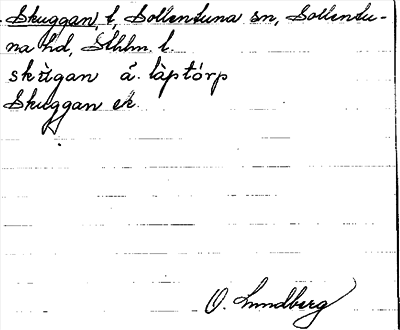 Skuggan, t, Sollentuna sn, Sollentu-
na hd, Sthlm. l.
skùgan á. làptórp
Skuggan ek
O. Lundberg